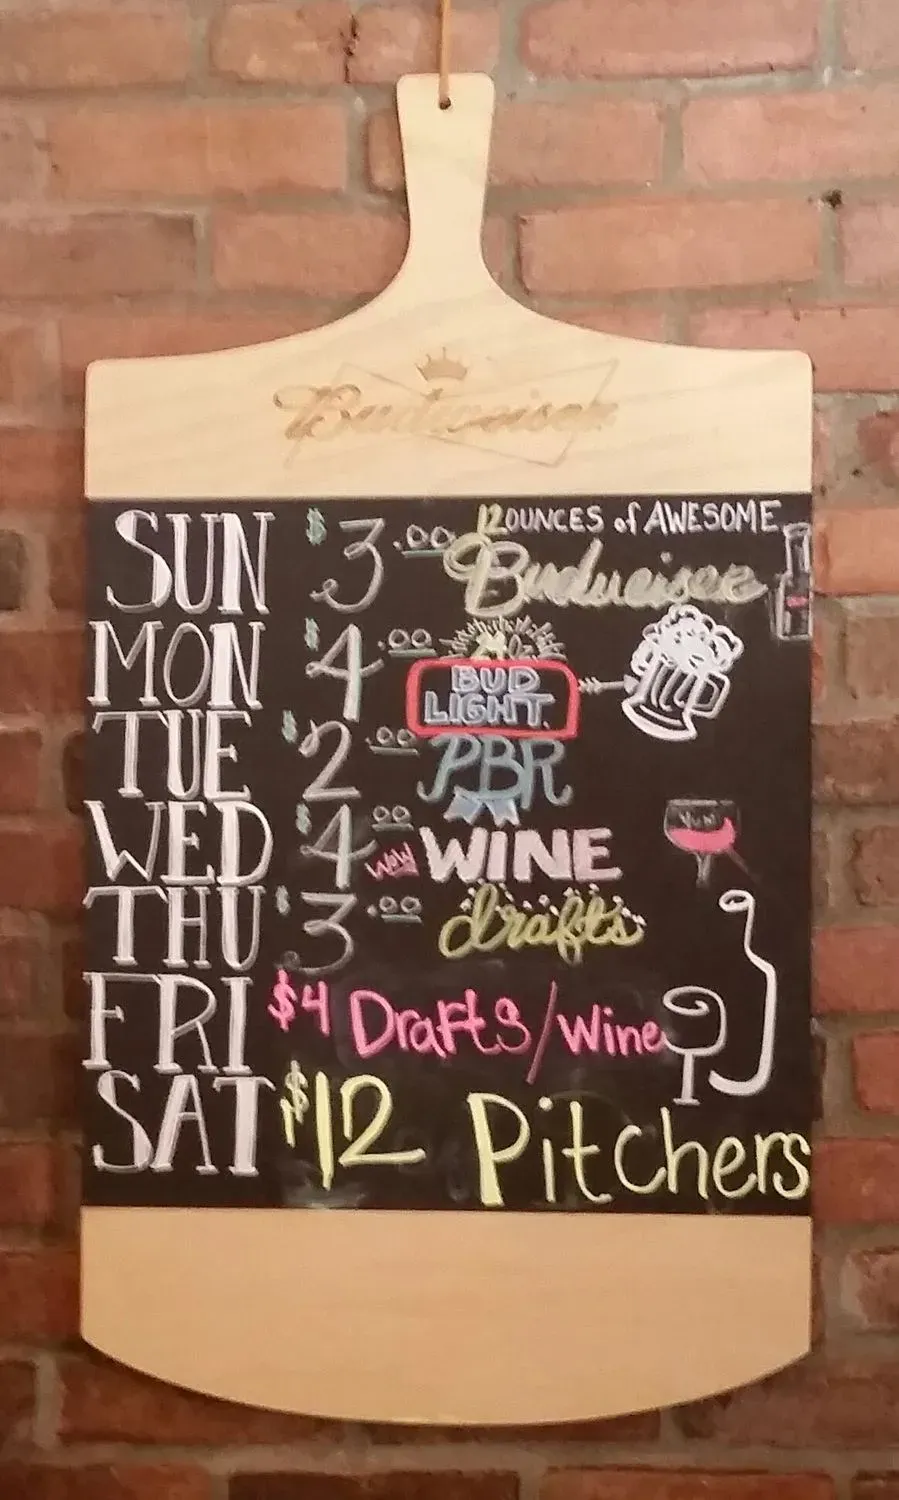 Budweiser
SUN $3.00 12 OUNCES of AWESOME
Budweiser
MON $4.00 24 Oz
BUD
LIGHT.
TUE $2.00 PBR
WED $4.00 WOW WINE
YUM
THU $3.00 drafts
FRI $4 Drafts/Wine
SAT $12 Pitchers